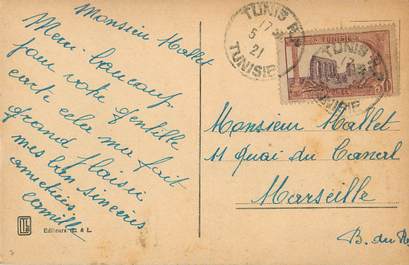 Monsieur Mallet
Merci beaucoup
pour votre gentille
carte cela m'a fait
grand plaisir
mes bien sincères
amitiées
Camille
Editeurs & L.
TUNIS
17
5
21
TUNISIE
TUNIS
TUNISIE
50
Monsieur Mallet
11 Quai du Canal
Marseille
B. du